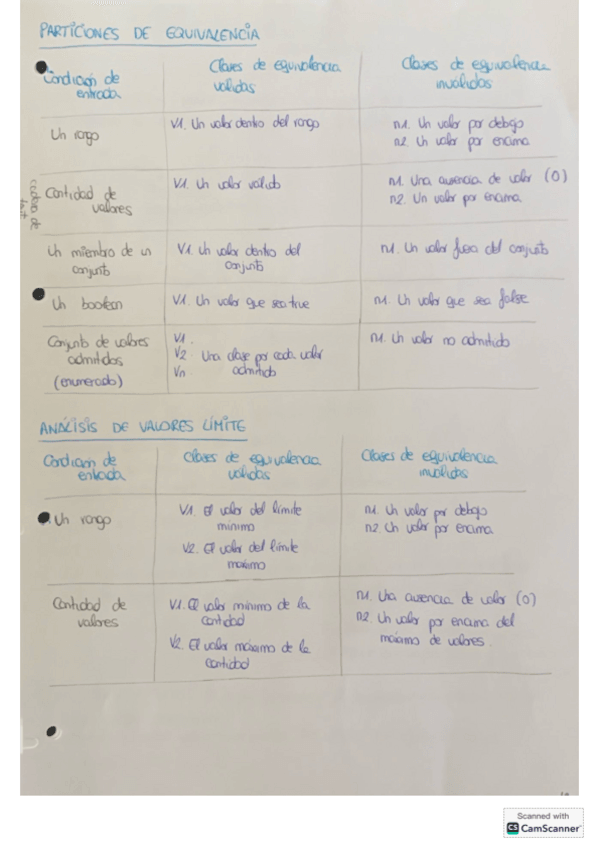 PARTICIONES DE EQUIVALENCIA
Condición de entrada
Clases de equivalencia válidas
Clases de equivalencia inválidas
Un rango
V1. Un valor dentro del rango
n1. Un valor por debajo
n2. Un valor por encima
Cantidad de valores
V1. Un valor válido
n1. Una ausencia de valor (0)
n2. Un valor por encima
Un miembro de un conjunto
V1. Un valor dentro del conjunto
n1. Un valor fuera del conjunto
Un boolean
V1. Un valor que sea true
n1. Un valor que sea false
Conjunto de valores admitidos (enumerado)
V1.
V2 Una clase por cada valor
Vn admitido
n1. Un valor no admitido
ANÁLISIS DE VALORES LÍMITE
Condición de entrada
Clases de equivalencia válidas
Clases de equivalencia inválidas
Un rango
V1. El valor del límite mínimo
V2. El valor del límite máximo
n1. Un valor por debajo
n2 Un valor por encima
Cantidad de valores
V1. El valor mínimo de la cantidad
V2. El valor máximo de la cantidad
n1. Una ausencia de valor (0)
n2. Un valor por encima del máximo de valores.
Scanned with
CS CamScanner